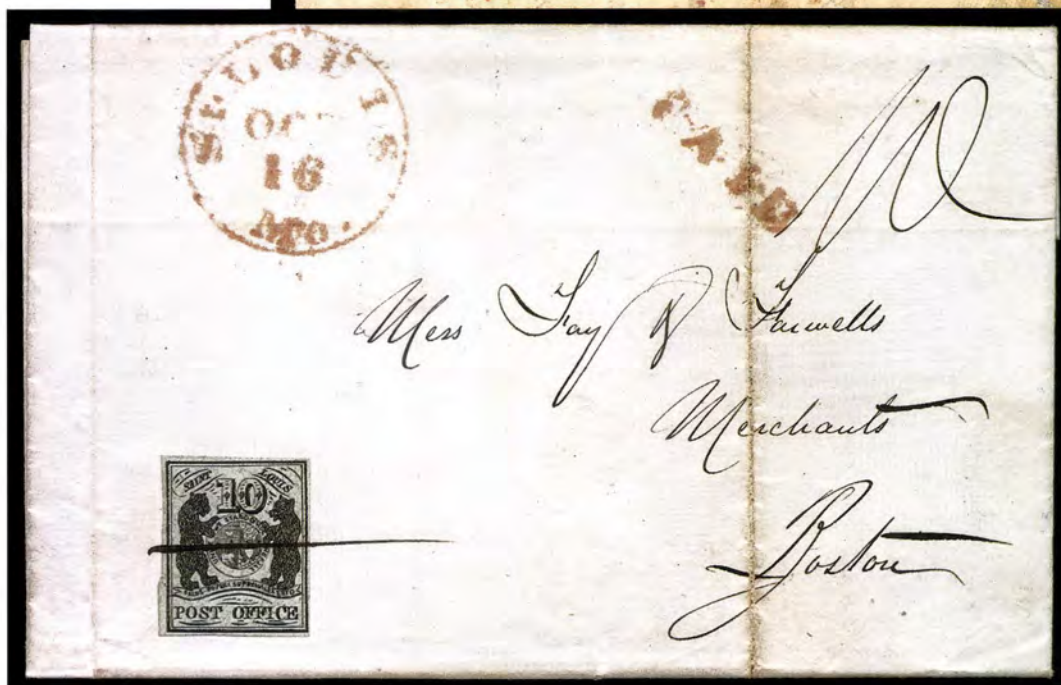 ST. LOUIS
OCT
16
Mo.
PAID
10
Mess Fay & Farwells
Merchants
Boston
SAINT LOUIS
10
POST OFFICE